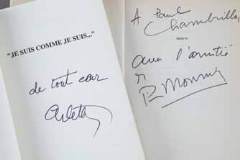 "JE SUIS COMME JE SUIS..."
de tout cœur
Arletty
A Paul
Chambrillon
avec l'amitié